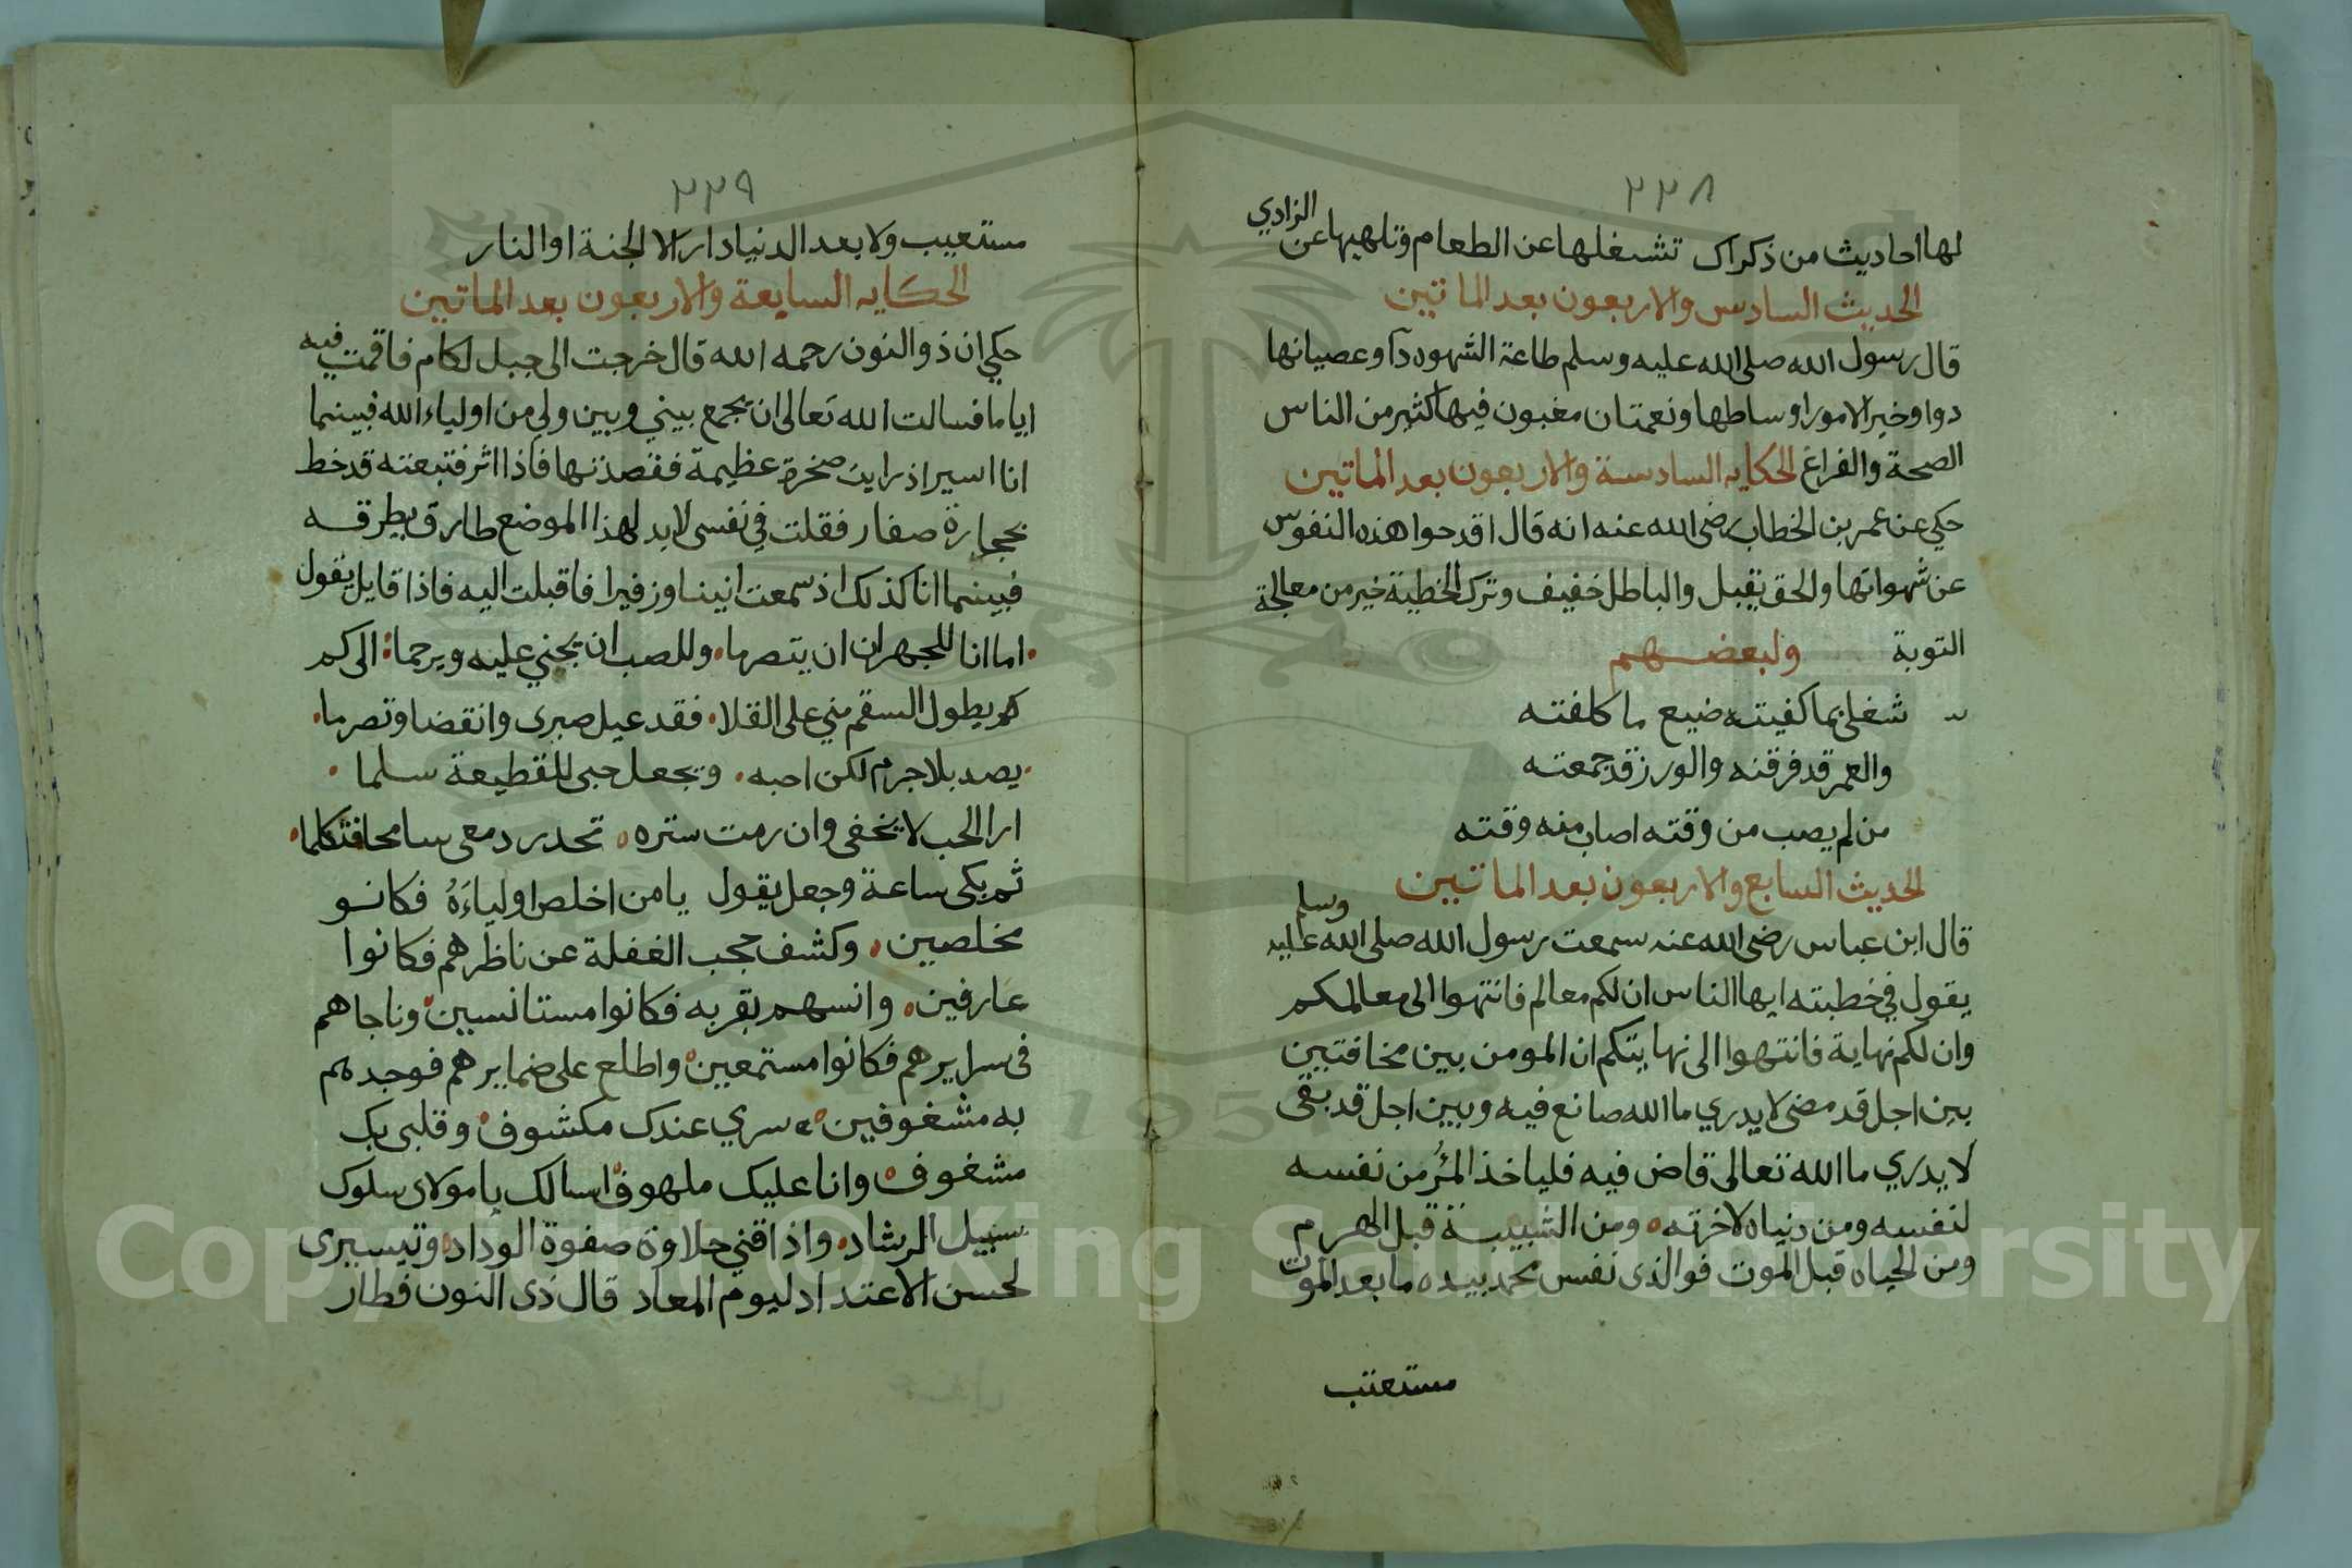 ٢٢٨
لها احاديث من ذكراك تشغلها عن الطعام وتلهيها عن الزادي
الحديث السادس والاربعون بعد الماتين
قال رسول الله صلى الله عليه وسلم طاعة الشهوه دآ وعصيانها
دوا وخير الامور اوساطها ونعمتان مغبون فيها كثير من الناس
الصحة والفراغ الحكايه السادسة والاربعون بعد الماتين
حكي عن عمر بن الخطاب رضى الله عنه انه قال اقدحوا هذه النفوس
عن شهواتها والحق يقبل والباطل خفيف وترك الخطية خير من معالجة
التوبة ولبعضهم
شغلى بما كفيته ضيع ما كلفته
والعمر قد فرقته والورز قد جمعته
من لم يصب من وقته اصاب منه وقته
الحديث السابع والاربعون بعد الماتين
قال ابن عباس رضى الله عنه سمعت رسول الله صلى الله عليه وسلم
يقول في خطبته ايها الناس ان لكم معالم فانتهوا الى معالمكم
وان لكم نهاية فانتهوا الى نهايتكم ان المومن بين مخافتين
بين اجل قد مضى لا يدري ما الله صانع فيه وبين اجل قد بقى
لا يدري ما الله تعالى قاض فيه فلياخذ المرُ من نفسه
لنفسه ومن دنياه لاخرته ومن الشبيبة قبل الهرم
ومن الحياه قبل الموت فوالذى نفس محمد بيده ما بعد الموت
مستعتب
٢٢٩
مستعيب ولا بعد الدنيا دار الا الجنة او النار
الحكايه السابعة والاربعون بعد الماتين
حكي ان ذو النون رحمه الله قال خرجت الى جبل لكام فاقمت فيه
اياما فسالت الله تعالى ان يجمع بيني وبين ولي من اولياء الله فبينما
انا اسير اذ رايت صخرة عظيمة فقصدتها فاذا اثر فتبعته قد خط
بحجارة صغار فقلت في نفسى لا بد لهذا الموضع طارق يطرقه
فبينما انا كذلك اذ سمعت انينا وزفيرا فاقبلت اليه فاذا قايل يقول
اما انا للجهران ان يتصرما وللصب ان يجني عليه ويرحما الى كم
كم يطول السقم مني على القلا فقد عيل صبرى وانقضا وتصرما
يصد بلا جرم لكن احبه ويجعل حبى للقطيعة سلما
ارا الحب لا يخفى وان رمت ستره تحدر دمعى سامحا فتكلما
ثم بكى ساعة وجعل يقول يا من اخلص اولياءَهُ فكانو
مخلصين وكشف حجب الغفلة عن ناظرهم فكانوا
عارفين وانسهم بقربه فكانوا مستانسين وناجاهم
فى سرايرهم فكانوا مستمعين واطلع على ضمايرهم فوجدهم
به مشغوفين سري عندك مكشوف وقلبى بك
مشغوف وانا عليك ملهوف اسالك يا مولاى سلوك
سبيل الرشاد واذاقني حلاوة صفوة الوداد وتيسيرى
لحسن الاعتداد ليوم المعاد قال ذى النون فطار
Copyright © King Saud University
1957